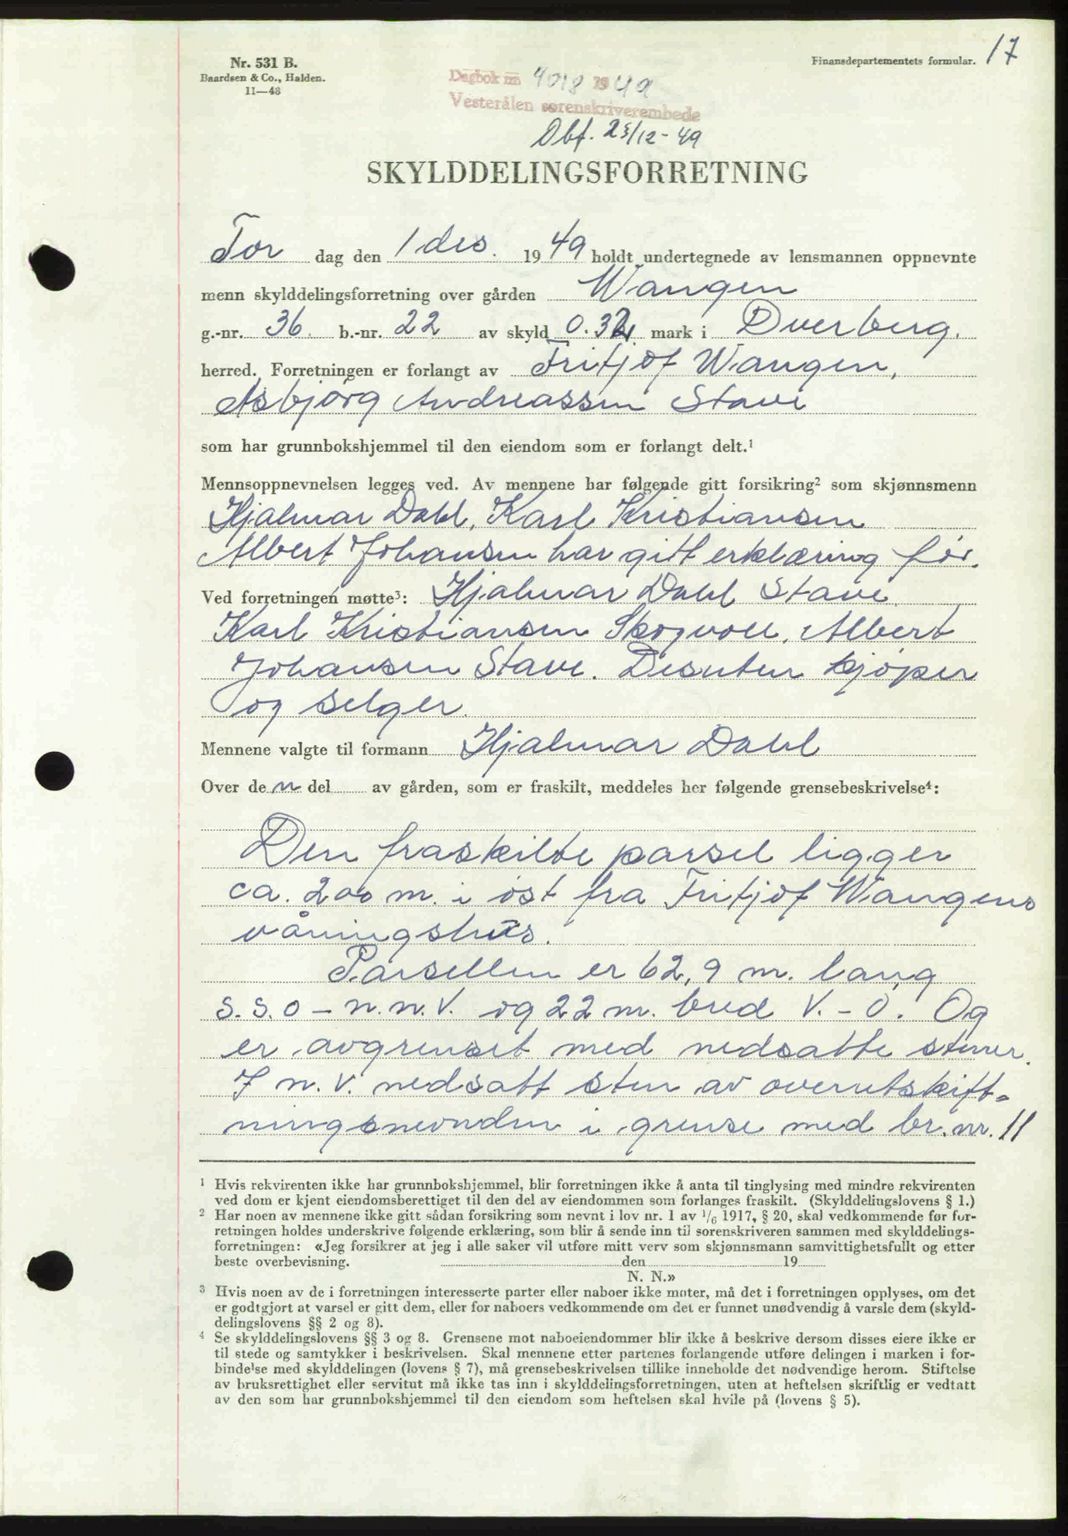 Nr. 531 B.
Baardsen & Co., Halden.
11—48
Finansdepartementets formular.
17
Dagbok nr. 4018 1949
Vesterålen sorenskriverembede
Dbf. 23/12-49
SKYLDDELINGSFORRETNING
Tor dag den 1 des. 1949 holdt undertegnede av lensmannen oppnevnte
menn skylddelingsforretning over gården Wangen
g.-nr. 36. b.-nr. 22 av skyld 0.32 mark i Dverberg.
herred. Forretningen er forlangt av Fritjof Wangen,
Asbjørg Andreassen Stave
som har grunnbokshjemmel til den eiendom som er forlangt delt.¹
Mennsoppnevnelsen legges ved. Av mennene har følgende gitt forsikring² som skjønnsmenn
Hjalmar Dahl, Karl Kristiansen
Albert Johansen har gitt erklæring før.
Ved forretningen møtte³: Hjalmar Dahl Stave,
Karl Kristiansen Skogvoll, Albert
Johansen Stave. Desuten kjøper
og selger.
Mennene valgte til formann Hjalmar Dahl
Over de n del av gården, som er fraskilt, meddeles her følgende grensebeskrivelse⁴:
Den fraskilte parsel ligger
ca. 200 m. i øst fra Fritjof Wangens
våningshus.
Parsellen er 62,9 m. lang
s.s.o – n.n.v. og 22 m. bred V. – Ø. Og
er avgrenset med nedsatte stener.
I n.v. nedsatt sten av overutskift-
ningsnevnden i grense med br. nr. 11
¹ Hvis rekvirenten ikke har grunnbokshjemmel, blir forretningen ikke å anta til tinglysing med mindre rekvirenten
ved dom er kjent eiendomsberettiget til den del av eiendommen som forlanges fraskilt. (Skylddelingslovens § 1.)
² Har noen av mennene ikke gitt sådan forsikring som nevnt i lov nr. 1 av 1/6 1917, § 20, skal vedkommende før for-
retningen holdes underskrive følgende erklæring, som blir å sende inn til sorenskriveren sammen med skylddelings-
forretningen: «Jeg forsikrer at jeg i alle saker vil utføre mitt verv som skjønnsmann samvittighetsfullt og etter
beste overbevisning. den 19
N. N.»
³ Hvis noen av de i forretningen interesserte parter eller naboer ikke møter, må det i forretningen opplyses, om det
er godtgjort at varsel er gitt dem, eller for naboers vedkommende om det er funnet unødvendig å varsle dem (skyld-
delingslovens §§ 2 og 8).
⁴ Se skylddelingslovens §§ 3 og 8. Grensene mot naboeiendommer blir ikke å beskrive dersom disses eiere ikke er
til stede og samtykker i beskrivelsen. Skal mennene etter partenes forlangende utføre delingen i marken i for-
bindelse med skylddelingen (lovens § 7), må grensebeskrivelsen tillike inneholde det nødvendige herom. Stiftelse
av bruksrettighet eller servitut må ikke tas inn i skylddelingsforretningen, uten at heftelsen skriftlig er vedtatt
av den som har grunnbokshjemmel til den eiendom som heftelsen skal hvile på (lovens § 5).